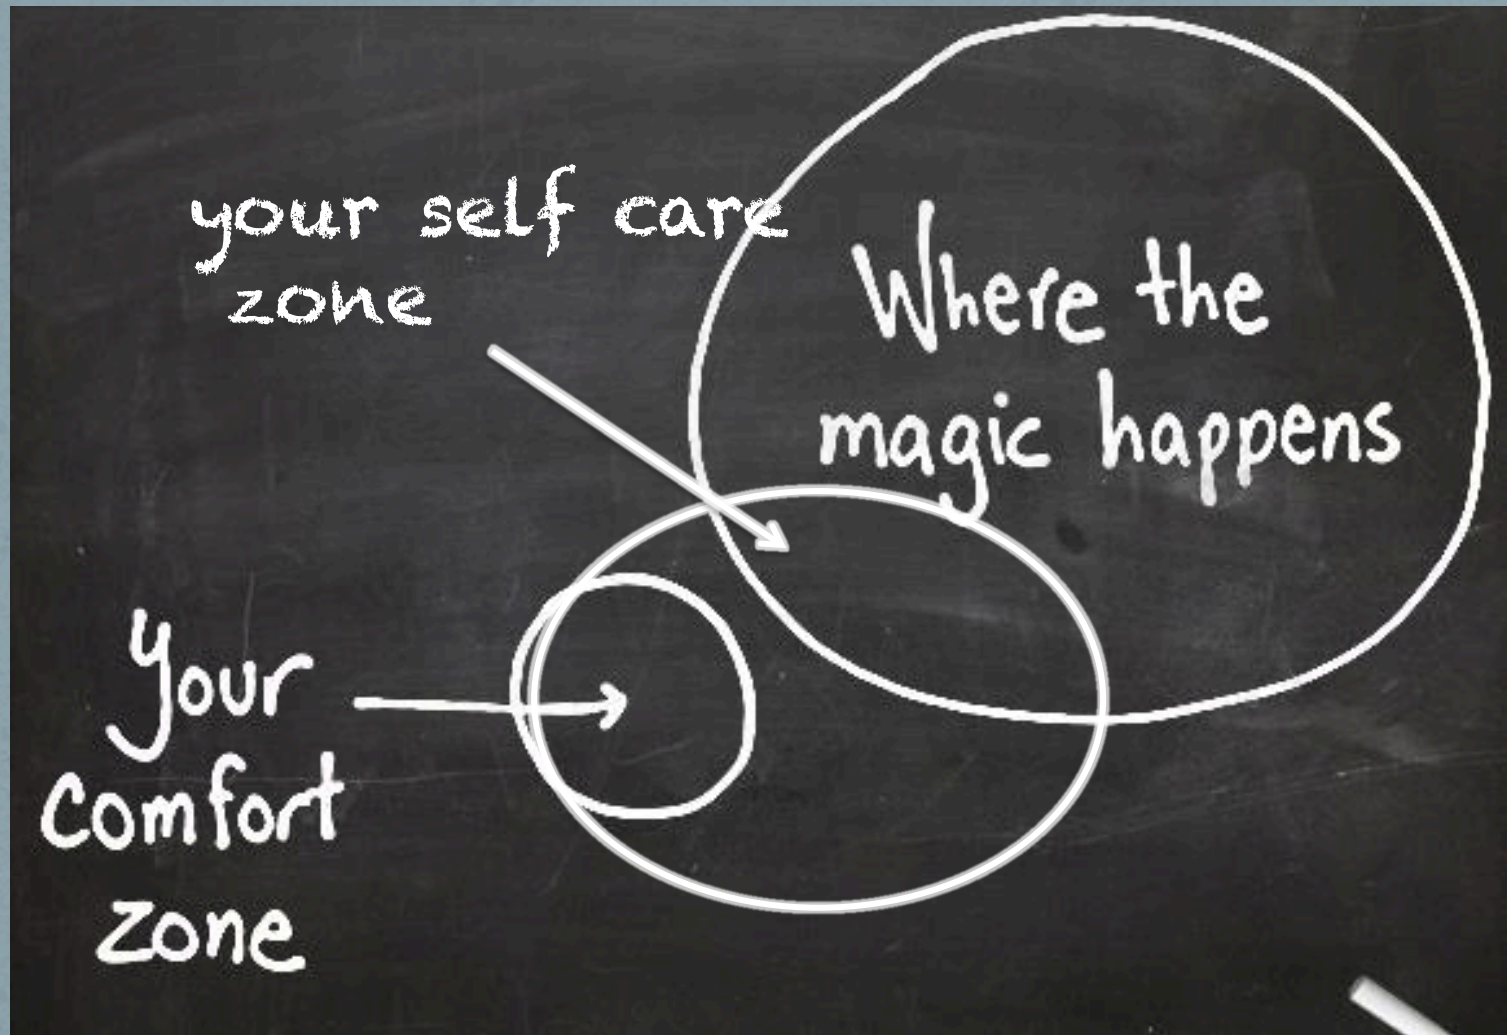 your self care
zone
Where the
magic happens
Your
comfort
zone